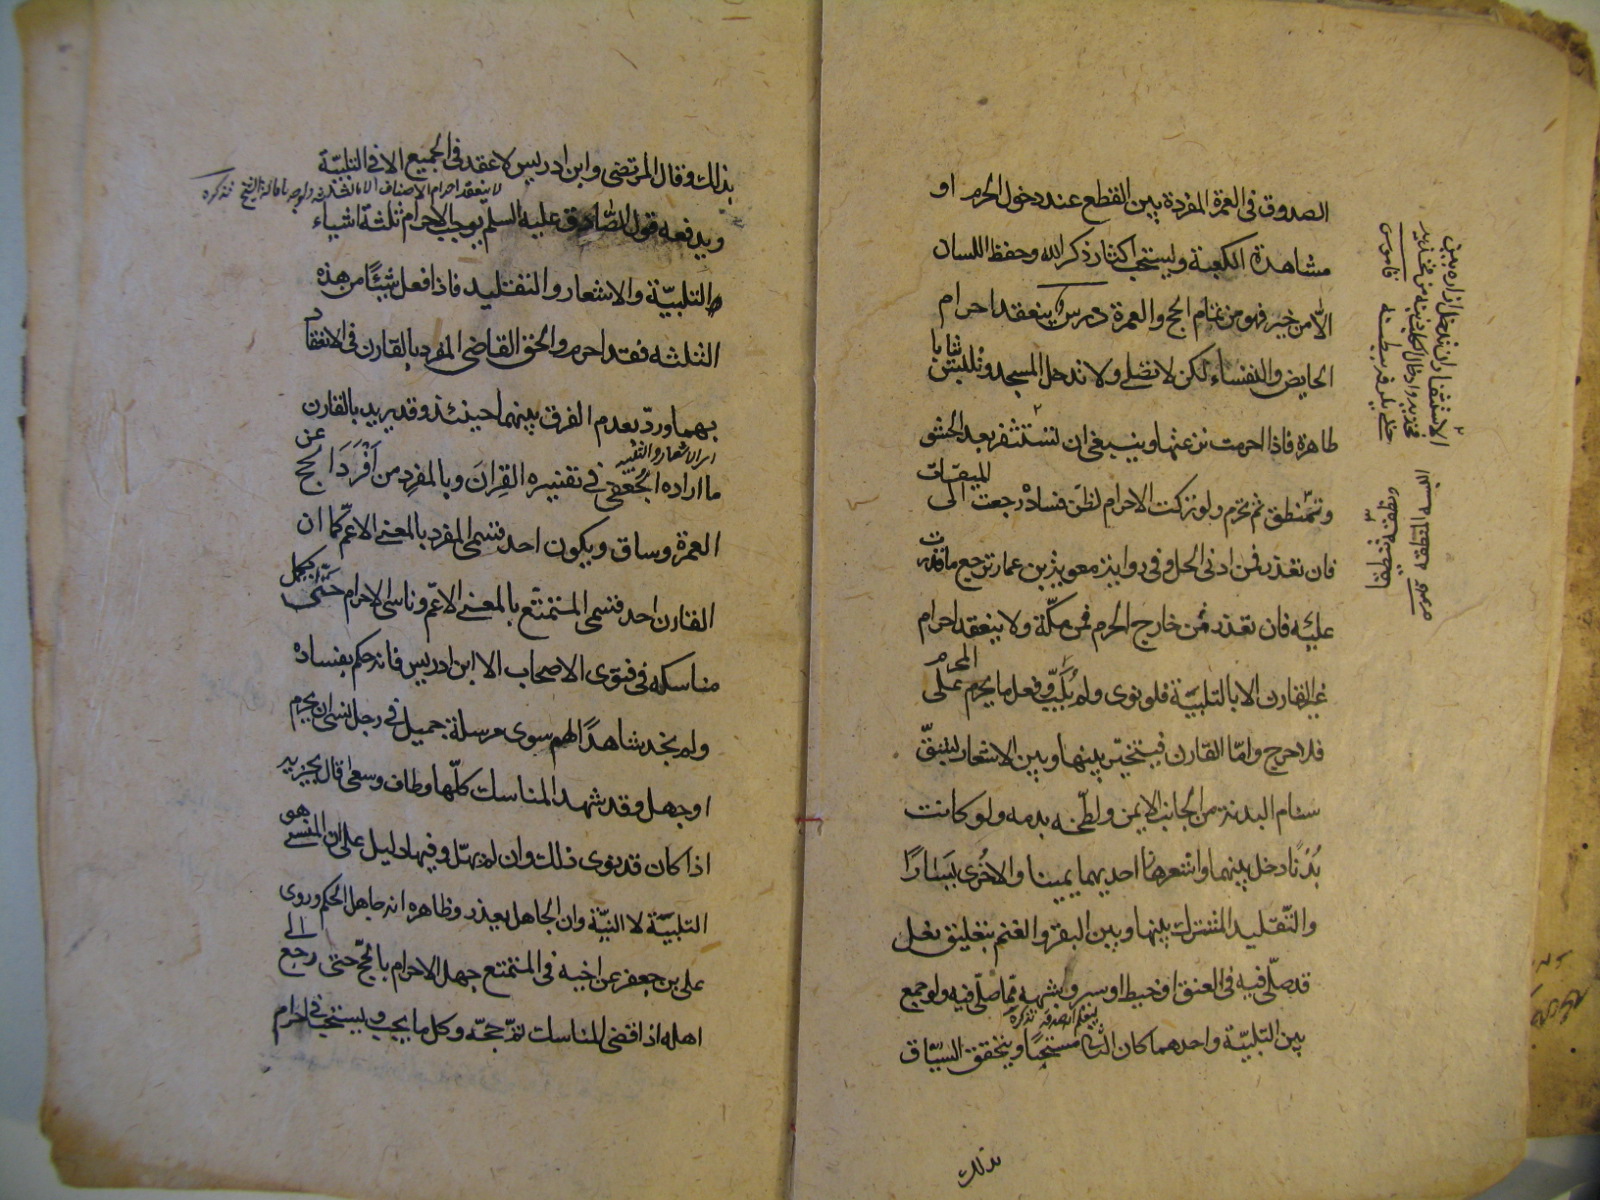 الصدوق في العمرة المفردة بين القطع عند دخول الحرم او
مشاهدة الكعبة ويستحب اكثار ذكر الله وحفظ اللسان
الا من خير فهو من تمام الحج والعمرة درس ينعقد احرام
الحايض والنفساء لكن لا تصلي ولا تدخل المسجد وتلبس ثيابا
طاهرة فاذا احرمت نزعتها وينبغي ان تستثفر بعد الحشو
وتتمنطق ثم تحرم ولو تركت الاحرام لظن فساده رجعت الى الميقات
فان تعذر فمن ادنى الحل وفي رواية معوية بن عمار ترجع ما قدرت
عليه فان تعذر فمن خارج الحرم فمن مكة ولا ينعقد احرام
غير القارن الا بالتلبية فلو نوى ولم يلب وفعل ما يحرم على المحرم
فلا حرج واما القارن فيتخير بينها وبين الاشعار بشق
سنام البدنة من الجانب الايمن ولطخه بدمه ولو كانت
بدنا دخل بينهما واشعرها احديهما يمينا والاخرى يسارا
والتقليد المشترك بينها وبين البقر والغنم بتعليق نعل
قد صلى فيه في العنق او خيط او سير وشبهه مما صلى فيه ولو جمع
بين التلبية واحدهما كان الثاني مستحبا ويتحقق السياق
بذلك
الاستثفار ان تدخل ازاره بين
فخذيه
قاموس
بذلك وقال المرتضى وابن ادريس لا عقد في الجميع الا في التلبية
لا ينعقد احرام الاصناف الا بالتلبية
تذكره
ويدفعه قول الصادق عليه السلم يوجب الاحرام ثلثة اشياء
التلبية والاشعار والتقليد فاذا فعل شيئا من هذه
الثلثه فقد احرم والحق القاضي المفرد بالقارن في الانعقاد
بهما ورد بعدم الفرق بينهما حينئذ وقد يريد بالقارن
اي الاشعار والتقليد
ما اراده الجعفي في تفسيره القران وبالمفرد من افرد الحج عن
العمرة وساق ويكون احد قسمي المفرد بالمعنى الاعم كما ان
القارن احد قسمي المتمتع بالمعنى الاعم وناسي الاحرام حتى يكمل
مناسكه في فتوى الاصحاب الا ابن ادريس فانه حكم بفساده
ولم نجد شاهدا لهم سوى مرسلة جميل في رجل نسي ان يحرم
او جهل وقد شهد المناسك كلها وطاف وسعى قال يجزيه
اذا كان قد نوى ذلك وان لم يهل وفيها دليل على ان المنسي هو
التلبية لا النية وان الجاهل يعذر وظاهره انه جاهل الحكم وروى
علي بن جعفر عن اخيه في المتمتع جهل الاحرام بالحج حتى رجع الى
اهله اذا قضى المناسك تم حجه وكل ما يجب ويستحب في احرام